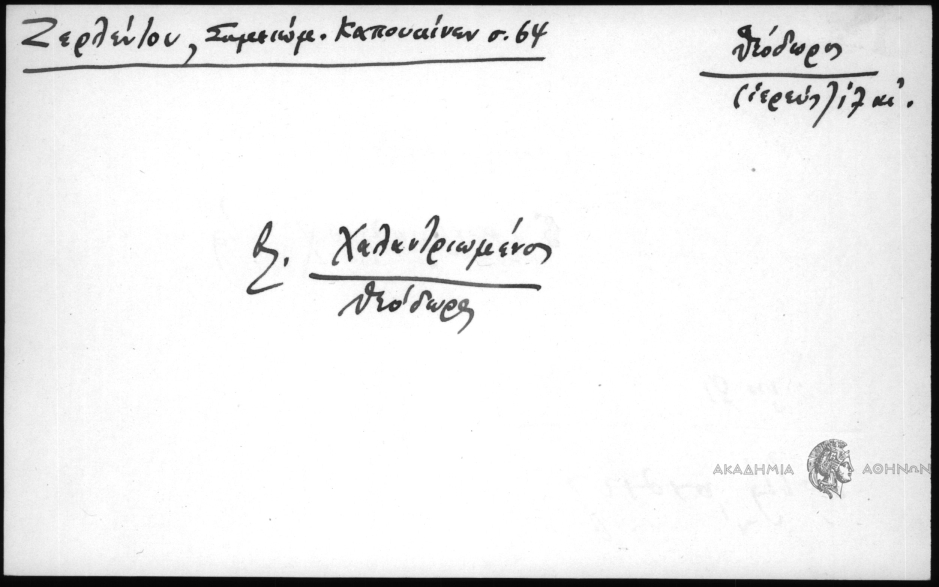 Ζερλέντου, Σημειώμ. Καπουκίνων σ. 64
Θεόδωρος
(ἱερεὺς) ιζ αἰ.
βλ. Χαλαντριωμένος
Θεόδωρος
ΑΚΑΔΗΜΙΑ ΑΘΗΝΩΝ